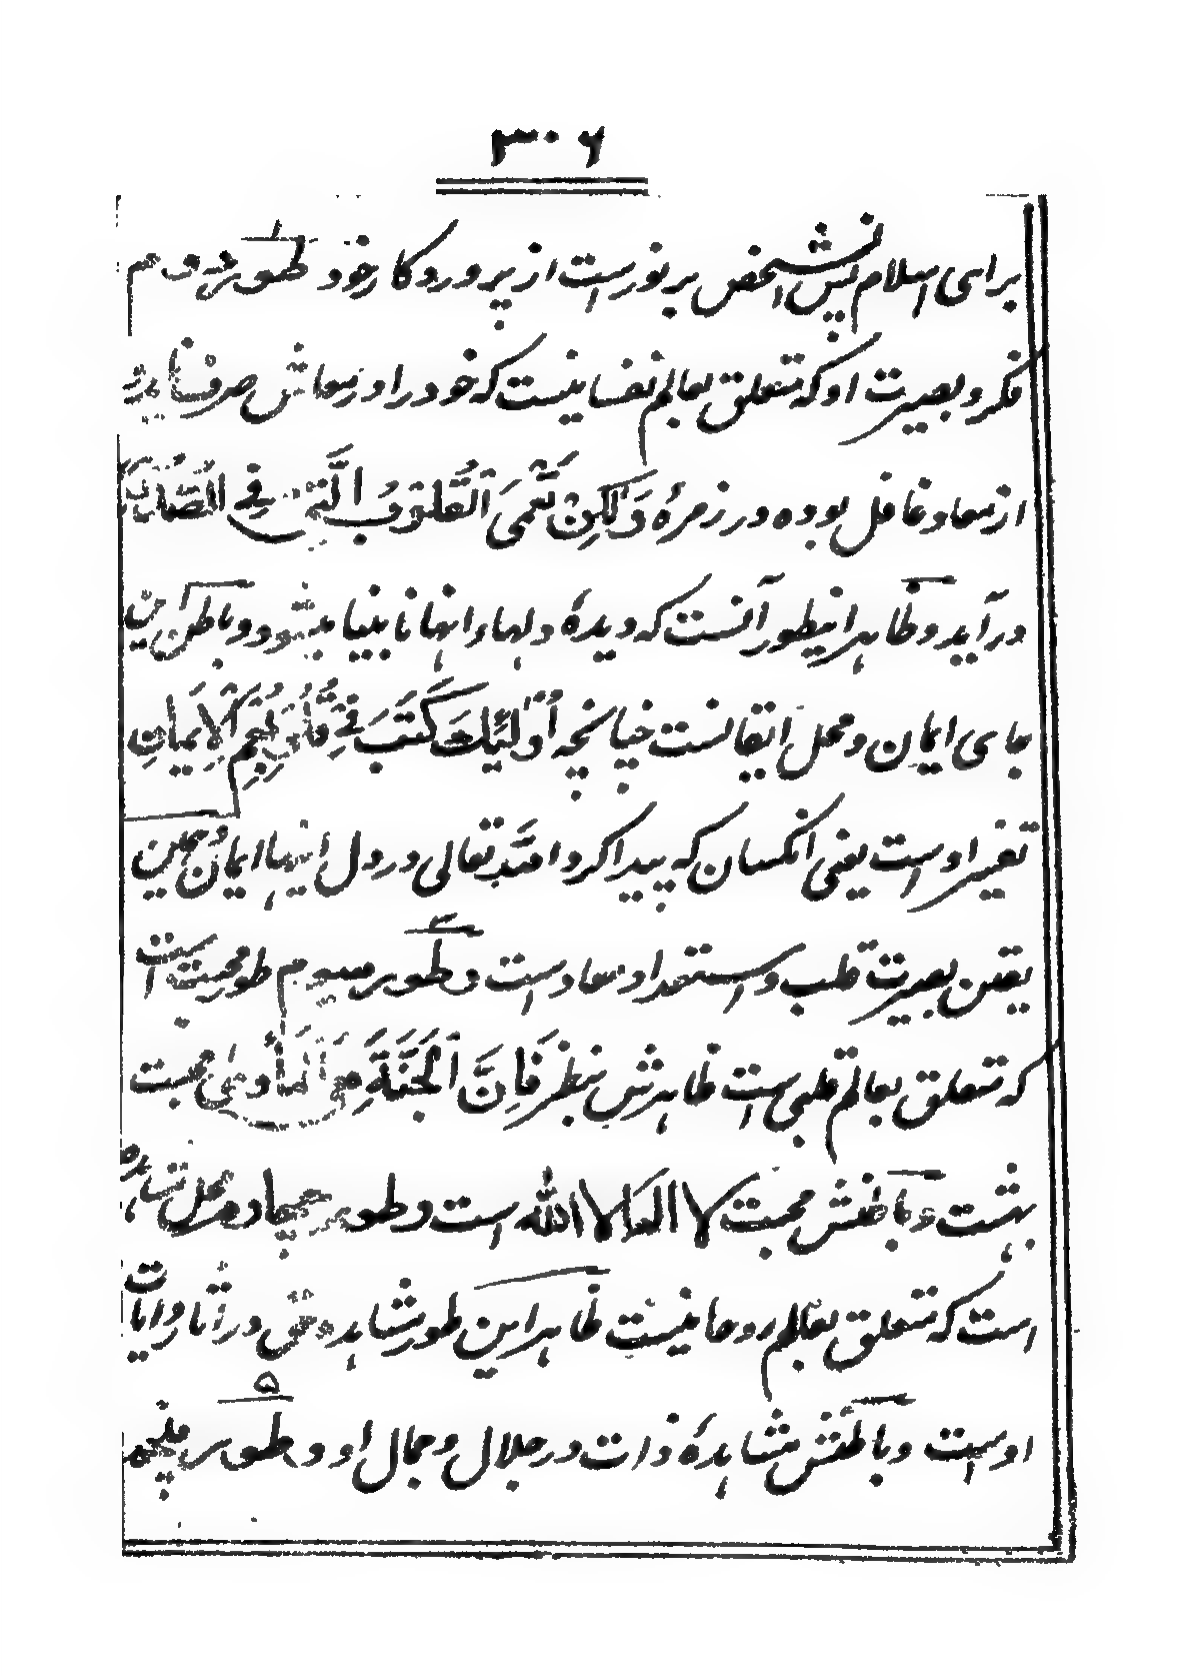 ۳۰۶
برای اسلام پس آنشخص بر نوریست از پروردگار خود و طور دوم
فکر و بصیرت او که متعلق بعالم نفسانیست که خود را در معاش صرف نماید
از معاد غافل بوده در زمرهٔ وَلٰکِنْ تَعْمَی الْقُلُوْبُ الَّتِیْ فِی الصُّدُوْرِ
درآید و ظاهر اینطور آنست که دیدهٔ دلهاء اینها نابینا میشود و باطن این
جای ایمان و محل ایقانست چنانچه اُولٰئِكَ كَتَبَ فِیْ قُلُوْبِهِمُ الْاِیْمَانَ
تفسیر اوست یعنی آنکسان که پیدا کرد الله تعالی در دل اینها ایمان همین
یقین بصیرت قلب و استعداد سعادتست و طور سیوم طور محبت است
که متعلق بعالم قلبی ست ظاهرش بنظر فَاِنَّ الْجَنَّةَ هِیَ الْمَأْوٰی محبت
بهشت و باطنش محبت لا اله الا الله است و طور چهارم محل مشاهده
است که متعلق بعالم روحانیست ظاهر این طور مشاهده حق در آثار و آیات
اوست و باطنش مشاهدهٔ ذات در جلال و جمال او و طور پنجم